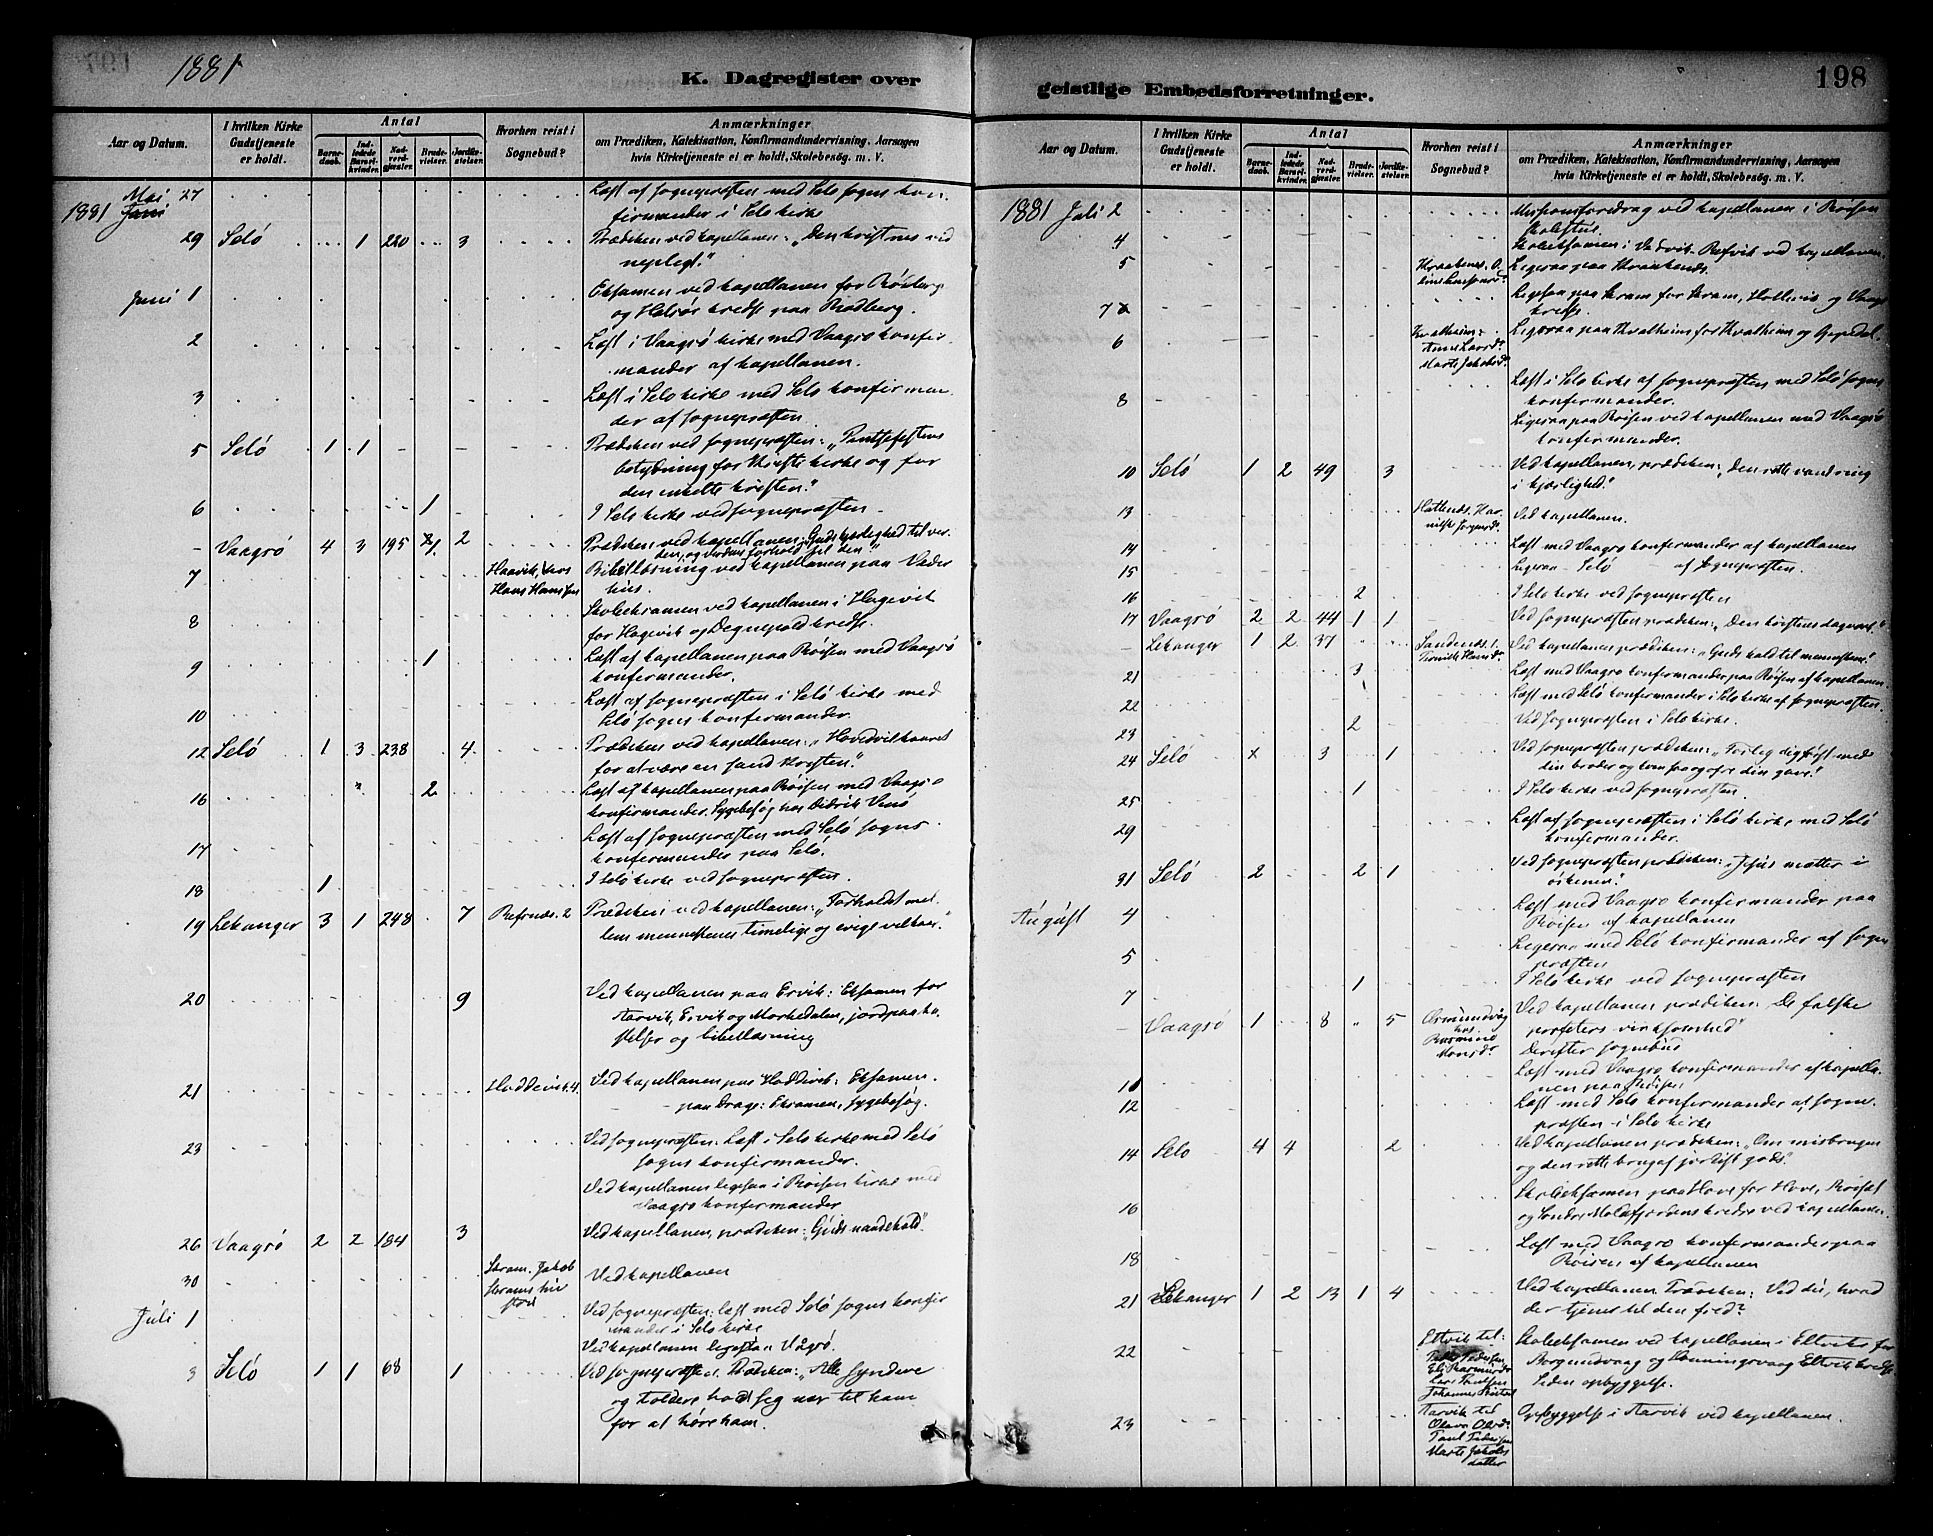 1881
K. Dagregister over
Aar og Datum.
I hvilken Kirke
Gudstjeneste
er holdt.
Antal
Barne-
daab.
Ind-
ledede
Barsel-
kvinder.
Nad-
verd-
gjæster.
Brude-
vielser.
Jordfæ-
stelser.
Hvorhen reist i
Sognebud?
Anmærkninger
om Prædiken, Katekisation, Konfirmandundervisning, Aarsagen
hvis Kirketjeneste ei er holdt, Skolebesøg. m. V.
1881 Mai 27 Læst af sognepræsten med Selø sogns kon-
Juni
firmander i Selø kirke
29 Selø 1 220 3 Prædiken ved kapellanen: „Den kristnes vid
nepligt."
Juni 1 Eksamen ved kapellanen for
og kreds paa Rødberg.
2 Læst i Vaagsø kirke med Vaagsø konfir-
mander af kapellanen.
3 Læst i Selø kirke med Selø konfirman-
der af sognepræsten
5 Selø 1 1 - - - Prædiken ved sognepræsten: „Pintsefestens
betydning for Kristi kirke og for
den enkelte kristen."
6 1 I Selø kirke ved sognepræsten
- Vaagsø 4 3 195 2 Prædiken ved kapellanen: „Guds kjærlighed til ver-
den, og verdens forhold til den."
7 Haavik, hos Bibellæsning ved kapellanen paa
Hans Hans sen hus.
8 Skoleeksamen ved kapellanen i Hagevik
for Hagevik og Degnepold kreds.
9 1 Læst af kapellanen paa Røisen med Vaagsø
konfermander.
10 Læst af sognepræsten i Selø kirke med
Selø sogns konfermander.
12 Selø 1 3 238 4 Prædiken ved kapellanen: „Hovedvilkaaret
for at være en sand kristen."
16 2 Læst af kapellanen paa Røisen med Vaagsø
konfermander. Sygebesøg hos Didrik
17 Læst af sognepræsten med Selø sogns
konfermander paa Selø.
18 1 I Selø kirke ved sognepræsten.
19 Lekanger 3 1 248 7 Refsnæs. 2 Prædiken ved kapellanen: „Forholdet mel-
lem menneskenes timelige og evige velkaar."
20 9 Ved kapellanen paa Ervik: Eksamen for
Aarvik, Ervik og Morkedalen, jordpaaka-
stelser og bibellæsning
21 Hoddevik. 4. Ved kapellanen paa Hoddevik: Eksamen.
- - paa Drage: Eksamen, sygebesøg.
23 Ved sognepræsten: Læst i Selø kirke med Selø
sogns konfermander.
Ved kapellanen ligesaa i Røisen kirke med
Vaagsø konfermander
26 Vaagsø 2 2 184 3 Ved kapellanen, prædiken: „Guds naadekald".
30 Skram. Jakob Ved kapellanen
Skrams hu
stru
Juli 1 Ved sognepræsten: læst med Selø sogns konfir
mander i Selø kirke
Ved kapellanen ligesaa Vågsø.
3 Selø 1 1 68 1 Ved sognepræsten. Prædiken: „Alle syndere
og toldere holdt sig nær til ham
for at høre ham.
198
geistlige Embedsforretninger.
Aar og Datum.
I hvilken Kirke
Gudstjeneste
er holdt.
Antal
Barne-
daab.
Ind-
ledede
Barsel-
kvinder.
Nad-
verd-
gjæster.
Brude-
vielser.
Jordfæ-
stelser.
Hvorhen reist i
Sognebud?
Anmærkninger
om Prædiken, Katekisation, Konfirmandundervisning, Aarsagen
hvis Kirketjeneste ei er holdt, Skolebesøg. m. V.
1881 Juli 2 Missionsforedrag ved kapellanen i Røisen
skolestue.
4 Skoleeksamen i Vedvik, Refvik ved kapellanen.
5 Kraakenes. Ligesaa paa Kraakenes.
7 Ligesaa paa Skram for Skram, Holevik og Vaagsø
kreds.
6 Kvalheim: Ligesaa paa Kvalheim for Kvalheim og
Marte Jakobsdr
8 Læst i Selø kirke af sognepræsten med Selø sogns
konfermander.
Ligesaa paa Røisen ved kapellanen med Vaagsø
konfermander.
10 Selø 1 2 49 3 Ved kapellanen, prædiken: „Den rette vandring
i kjærlighed."
13 Ved kapellanen.
14 Læst med Vaagsø konfermander af kapellanen
15 Ligesaa - Selø - af sognepræsten.
16 2 I Selø kirke ved sognepræsten
17 Vaagsø 2 2 44 1 1 Ved sognepræsten prædiken: „Den kristnes
- Lekanger 1 2 37 Sandenes. 1. Ved kapellanen prædiken: „Guds kald til menneskene."
21 3 Læst med Vaagsø konfermander paa Røisen af kapellanen.
22 Læst med Selø konfermander i Selø kirke af sognepræsten.
23 2 Ved sognepræsten i Selø kirke.
24 Selø x 3 1 Ved sognepræsten prædiken: „Forlig dig først med
din broder og kom saa og ofre din gave."
25 1 I Selø kirke ved sognepræsten.
29 Læst af sognepræsten i Selø kirke med Selø
konfermander.
31 Selø 2 2 1 Ved sognepræsten prædiken: „Jesus mætter i
ørkenen."
August 4 Læst med Vaagsø konfermander paa
Røisen af kapellanen
5 Ligesaa med Selø konfermander af sogne
præsten
7 1 I Selø kirke ved sognepræsten
- Vaagsø 1 8 5 Osmundvåg Ved kapellanen prædiken: De falske
hos profeters virksomhed"
Rasmine
Monsdr. Derefter sognebud
11 Læst med Vaagsø konfermander af kapella-
nen paa Røisen
12 Læst med Selø konfermander af sogne-
præsten i Selø kirke
14 Selø 4 4 2 Ved kapellanen prædiken: „Om misbrugen
og den rette brug af jordisk gods".
16 Skoleeksamen paa Hove for Hove, Røisat
og Søndre kreds ved kapellanen.
18 Læst med Vaagsø konfermander paa
Røisen af kapellanen
21 Lekanger 1 2 13 1 4 Ved kapellanen Prædiken: Ved du, hvad
der tjener til den fred?
22 Eltvik til: Skoleeksamen ved kapellanen i Eltvik for
Borgundvaag og Honningsvaag Eltvik kreds
Siden opbyggelse.
23 Aarvik til Opbyggelse i Aarvik ved kapellanen.
Olava Olsdr
Marte Jakobs
datter